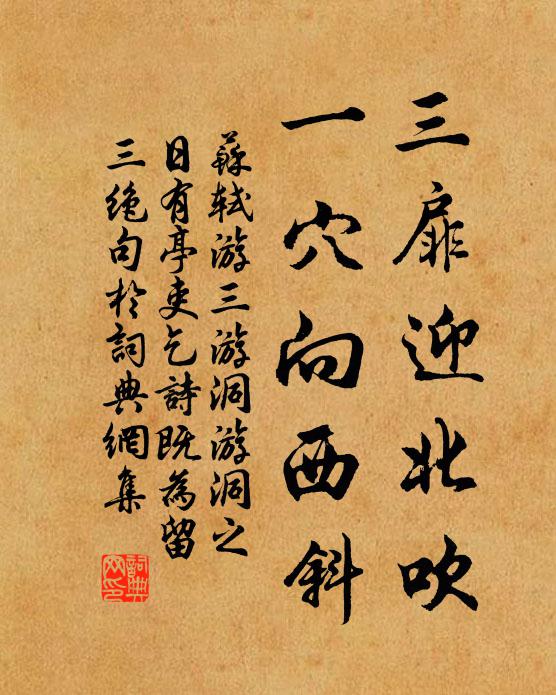 三扉迎北吹
一穴向西斜
蘇軾游三游洞游洞之
日有亭吏乞詩既為留
三絕句於詞典網集
詞典
网印